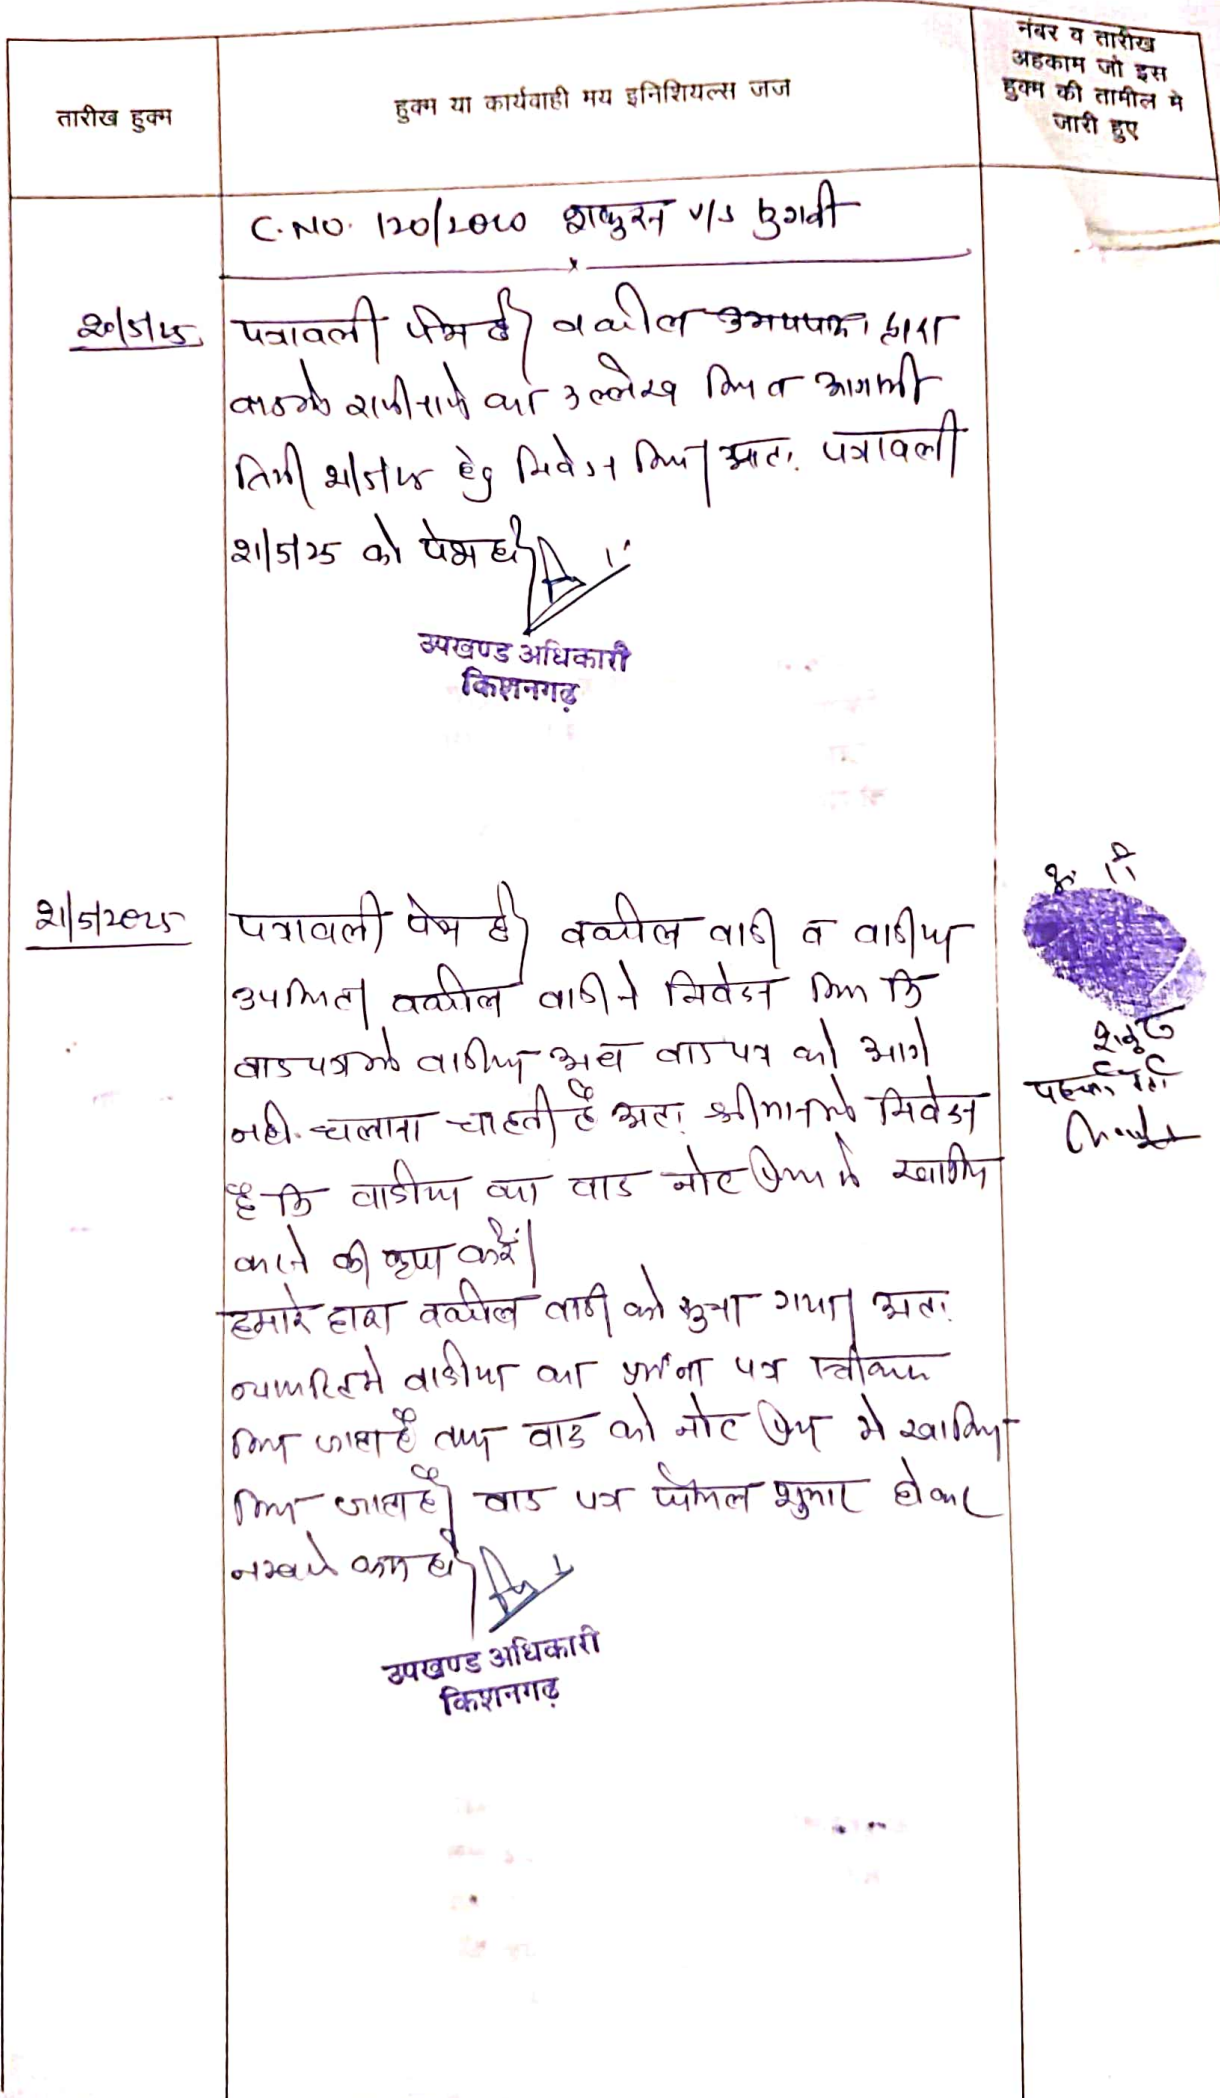 तारीख हुक्म
हुक्म या कार्यवाही मय इनिशियल्स जज
नंबर व तारीख
अहकाम जो इस
हुक्म की तामील मे
जारी हुए
C. NO. 120/2020 v/s
20/5/25
पत्रावली पेश है। वकील द्वारा
का उल्लेख किया व आगामी
हेतु निवेदन किया। अतः पत्रावली
21/5/25 को पेश हो।
उपखण्ड अधिकारी
किशनगढ़
21/5/2025
पत्रावली पेश है। वकील वादी व वादीया
उपस्थित। वकील वादी ने निवेदन किया कि
वादीया अब वाद पत्र को आगे
नही चलाना चाहती है अतः श्रीमान से निवेदन
है कि वादीया का वाद नोट प्रेस मे खारिज
करने की कृपा करें।
हमारे द्वारा वकील वादी को सुना गया। अतः
वादीया का प्रार्थना पत्र स्वीकार
किया जाता है तथा वाद को नोट प्रेस मे खारिज
किया जाता है। वाद पत्र फैसल शुमार होकर
नम्बर से कम हो।
उपखण्ड अधिकारी
किशनगढ़